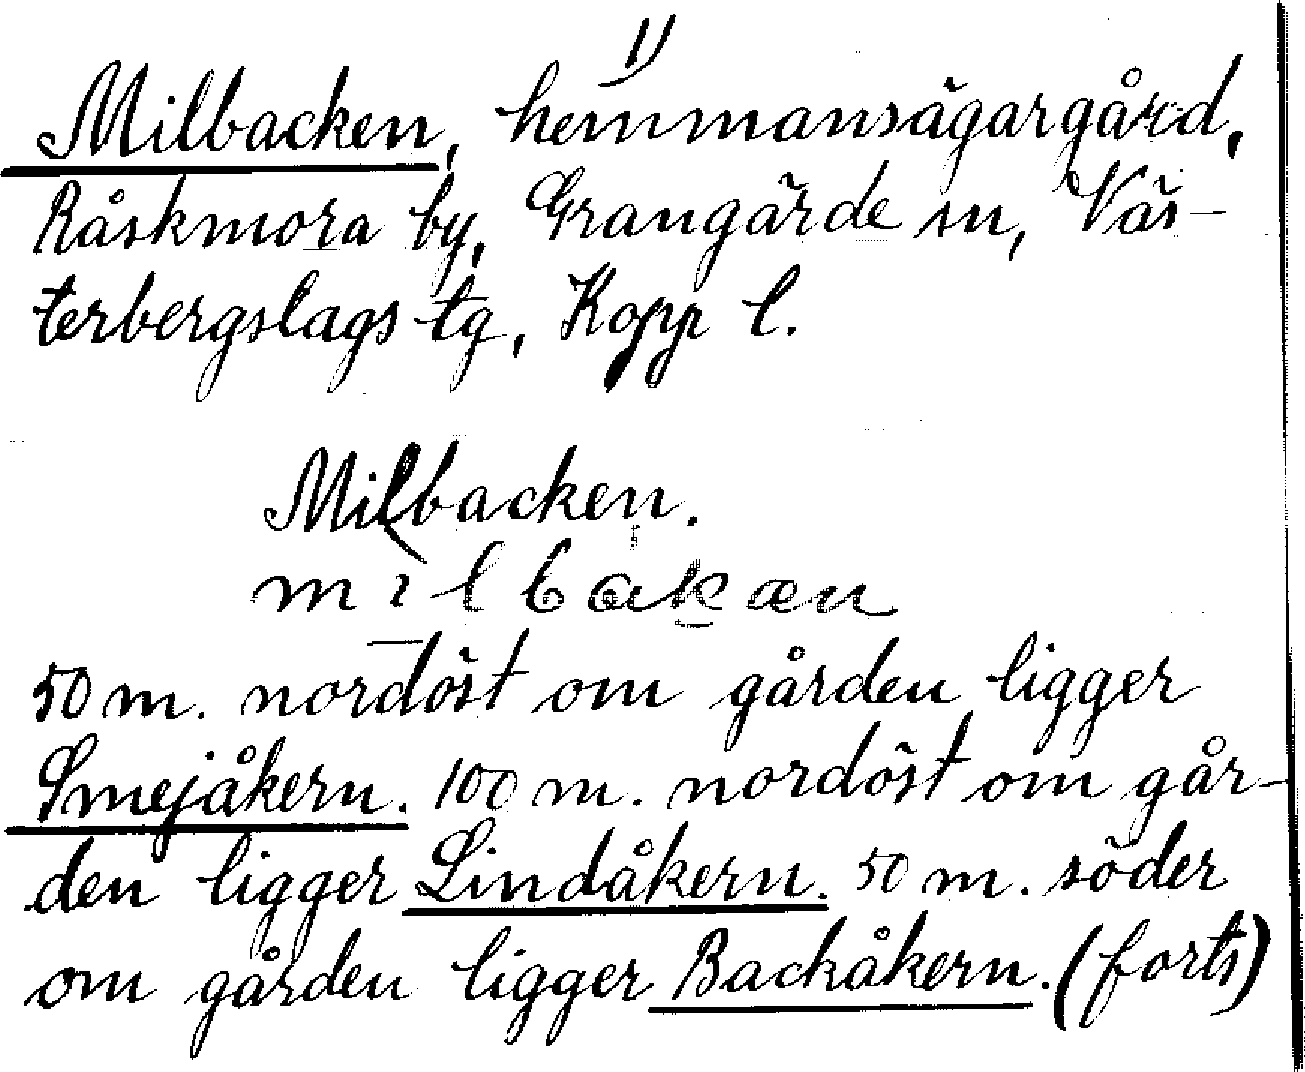 1)
Milbacken, hemmansägargård,
Råskmora by, Grangärde sn, Väs-
terbergslags tg, Kopp l.
Milbacken.
milbakæn
50 m. nordöst om gården ligger
Smejåkern. 100 m. nordöst om går-
den ligger Lindåkern. 50 m. söder
om gården ligger Backåkern. (forts)